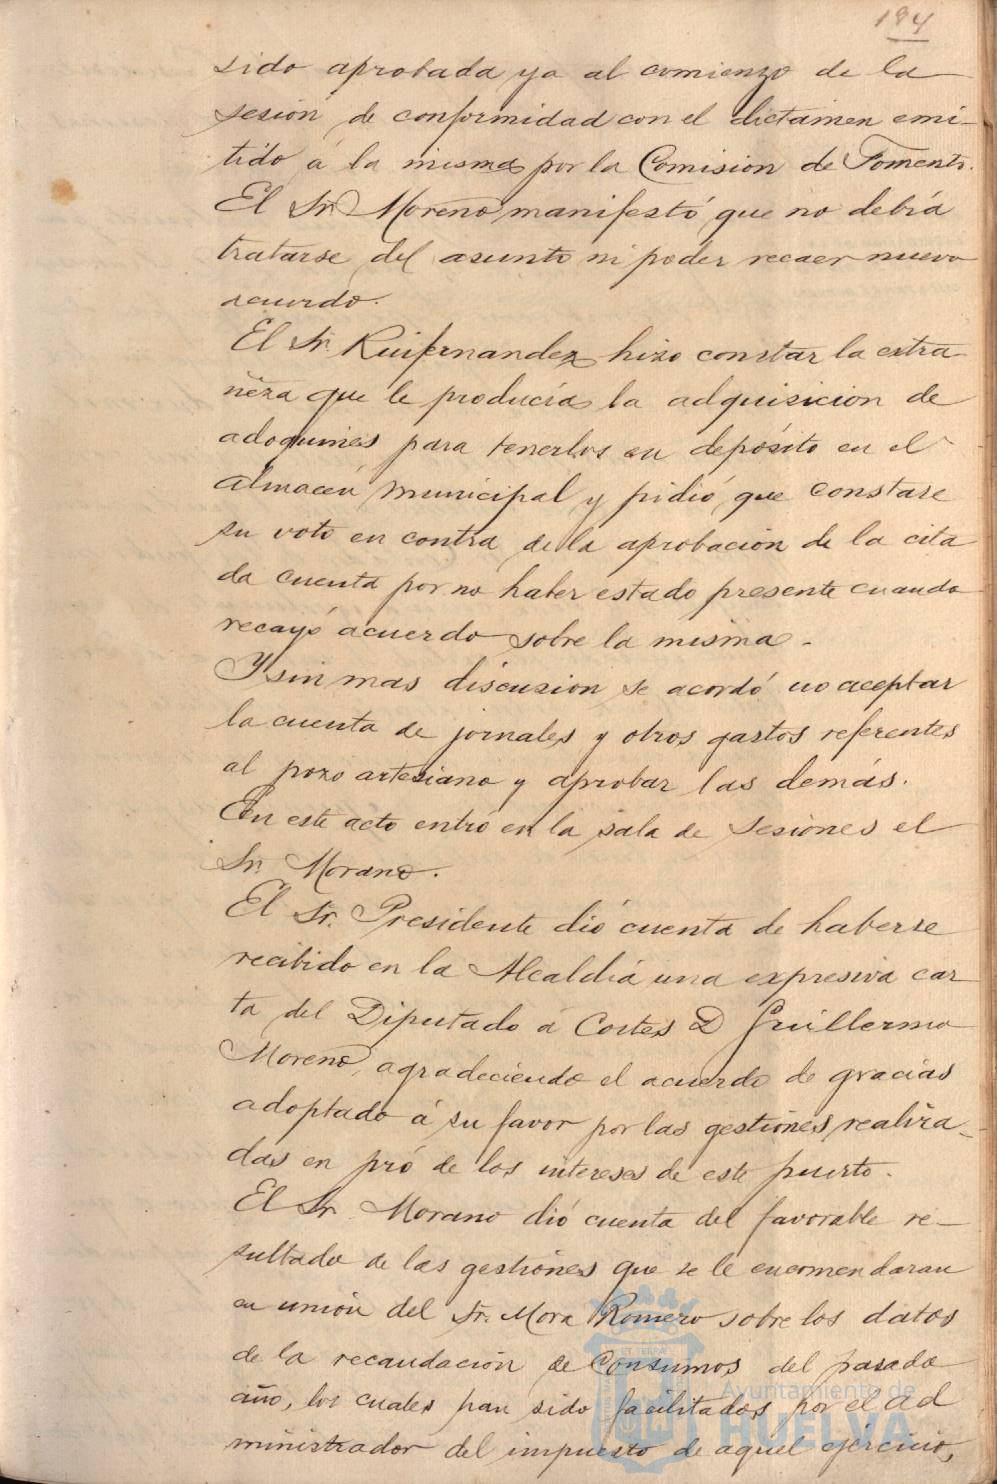 194
sido aprobada ya al comienzo de la
sesión de conformidad con el dictamen emi-
tido á la misma por la Comision de Fomento.
El Sr. Moreno manifestó que no debía
tratarse del asunto ni poder recaer nuevo
acuerdo.
El Sr. Ruifernandez hizo constar la extra
ñeza que le producía la adquisicion de
adoquines para tenerlos en depósito en el
almacén municipal y pidió que constase
su voto en contra de la aprobación de la cita
da cuenta por no haber estado presente cuando
recayó acuerdo sobre la misma.
Y sin mas discusion se acordó no aceptar
la cuenta de jornales y otros gastos referentes
al pozo artesiano y aprobar las demás.
En este acto entró en la sala de sesiones el
Sr. Morano.
El Sr. Presidente dió cuenta de haberse
recibido en la Alcaldía una expresiva car
ta del Diputado á Cortes D Guillermo
Moreno, agradeciendo el acuerdo de gracias
adoptado á su favor por las gestiones realiza-
das en pró de los intereses de este puerto.
El Sr. Morano dió cuenta del favorable re-
sultado de las gestiones que se le encomendaran
en unión del Sr. Mora Romero sobre los datos
de la recaudación de Consumos del pasado
año, los cuales han sido facilitados por el ad
ministrador del impuesto de aquel ejercicio,
Ayuntamiento de
HUELVA